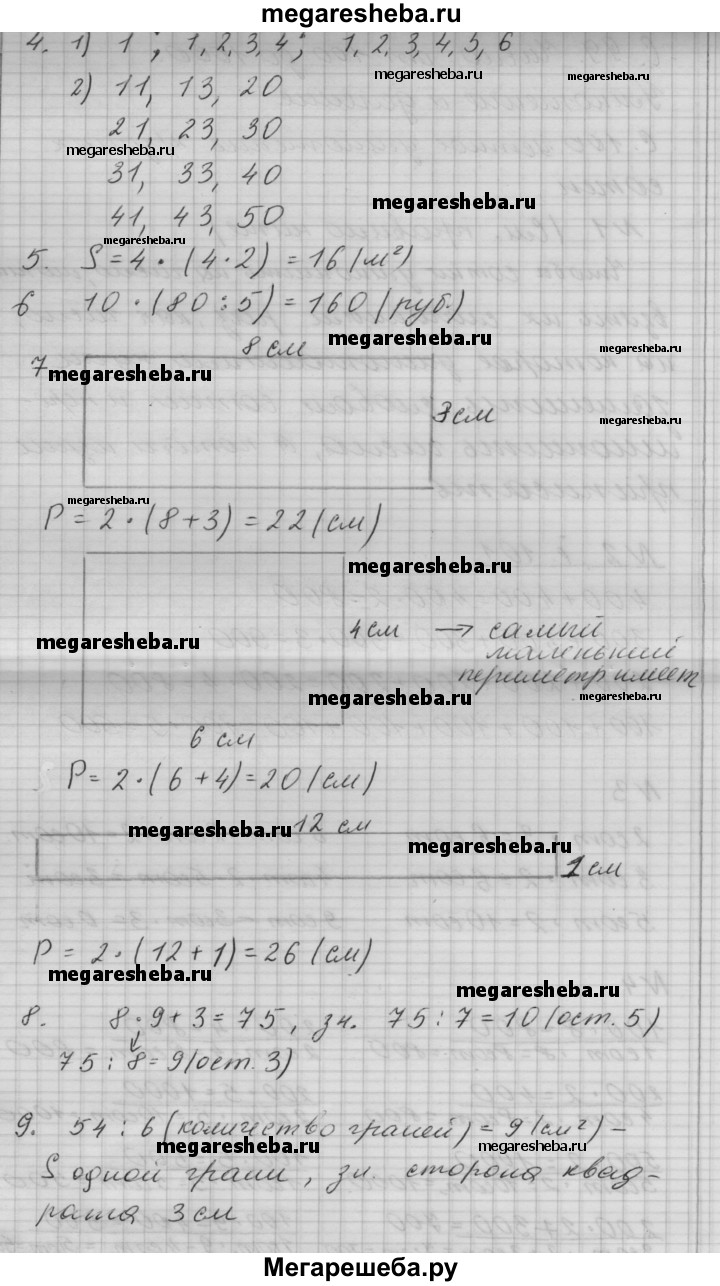 megaresheba.ru
4. 1) 1 ; 1, 2, 3, 4 ; 1, 2, 3, 4, 5, 6
megaresheba.ru megaresheba.ru
2) 11, 13, 20
21, 23, 30
megaresheba.ru
31, 33, 40
megaresheba.ru
41, 43, 50
megaresheba.ru
5. S = 4 · (4·2) = 16 (м²)
6 10 · (80 : 5) = 160 (руб.)
megaresheba.ru
8 см megaresheba.ru
7 megaresheba.ru
3 см megaresheba.ru
megaresheba.ru
P = 2 · (8 + 3) = 22 (см)
megaresheba.ru
4 см → самый
megaresheba.ru маленький
периметр имеет
megaresheba.ru megaresheba.ru
6 см
P = 2 · (6 + 4) = 20 (см)
megaresheba.ru 12 см
megaresheba.ru
1 см
P = 2 · (12 + 1) = 26 (см)
megaresheba.ru
megaresheba.ru
8. 8 · 9 + 3 = 75, зн. 75 : 7 = 10 (ост. 5)
75 : 8 = 9 (ост. 3)
9. 54 : 6 (количество граней) = 9 (см²) –
megaresheba.ru megaresheba.ru
S одной грани, зн. сторона квад-
рата 3 см
megaresheba.ru
Мегарешеба.ру